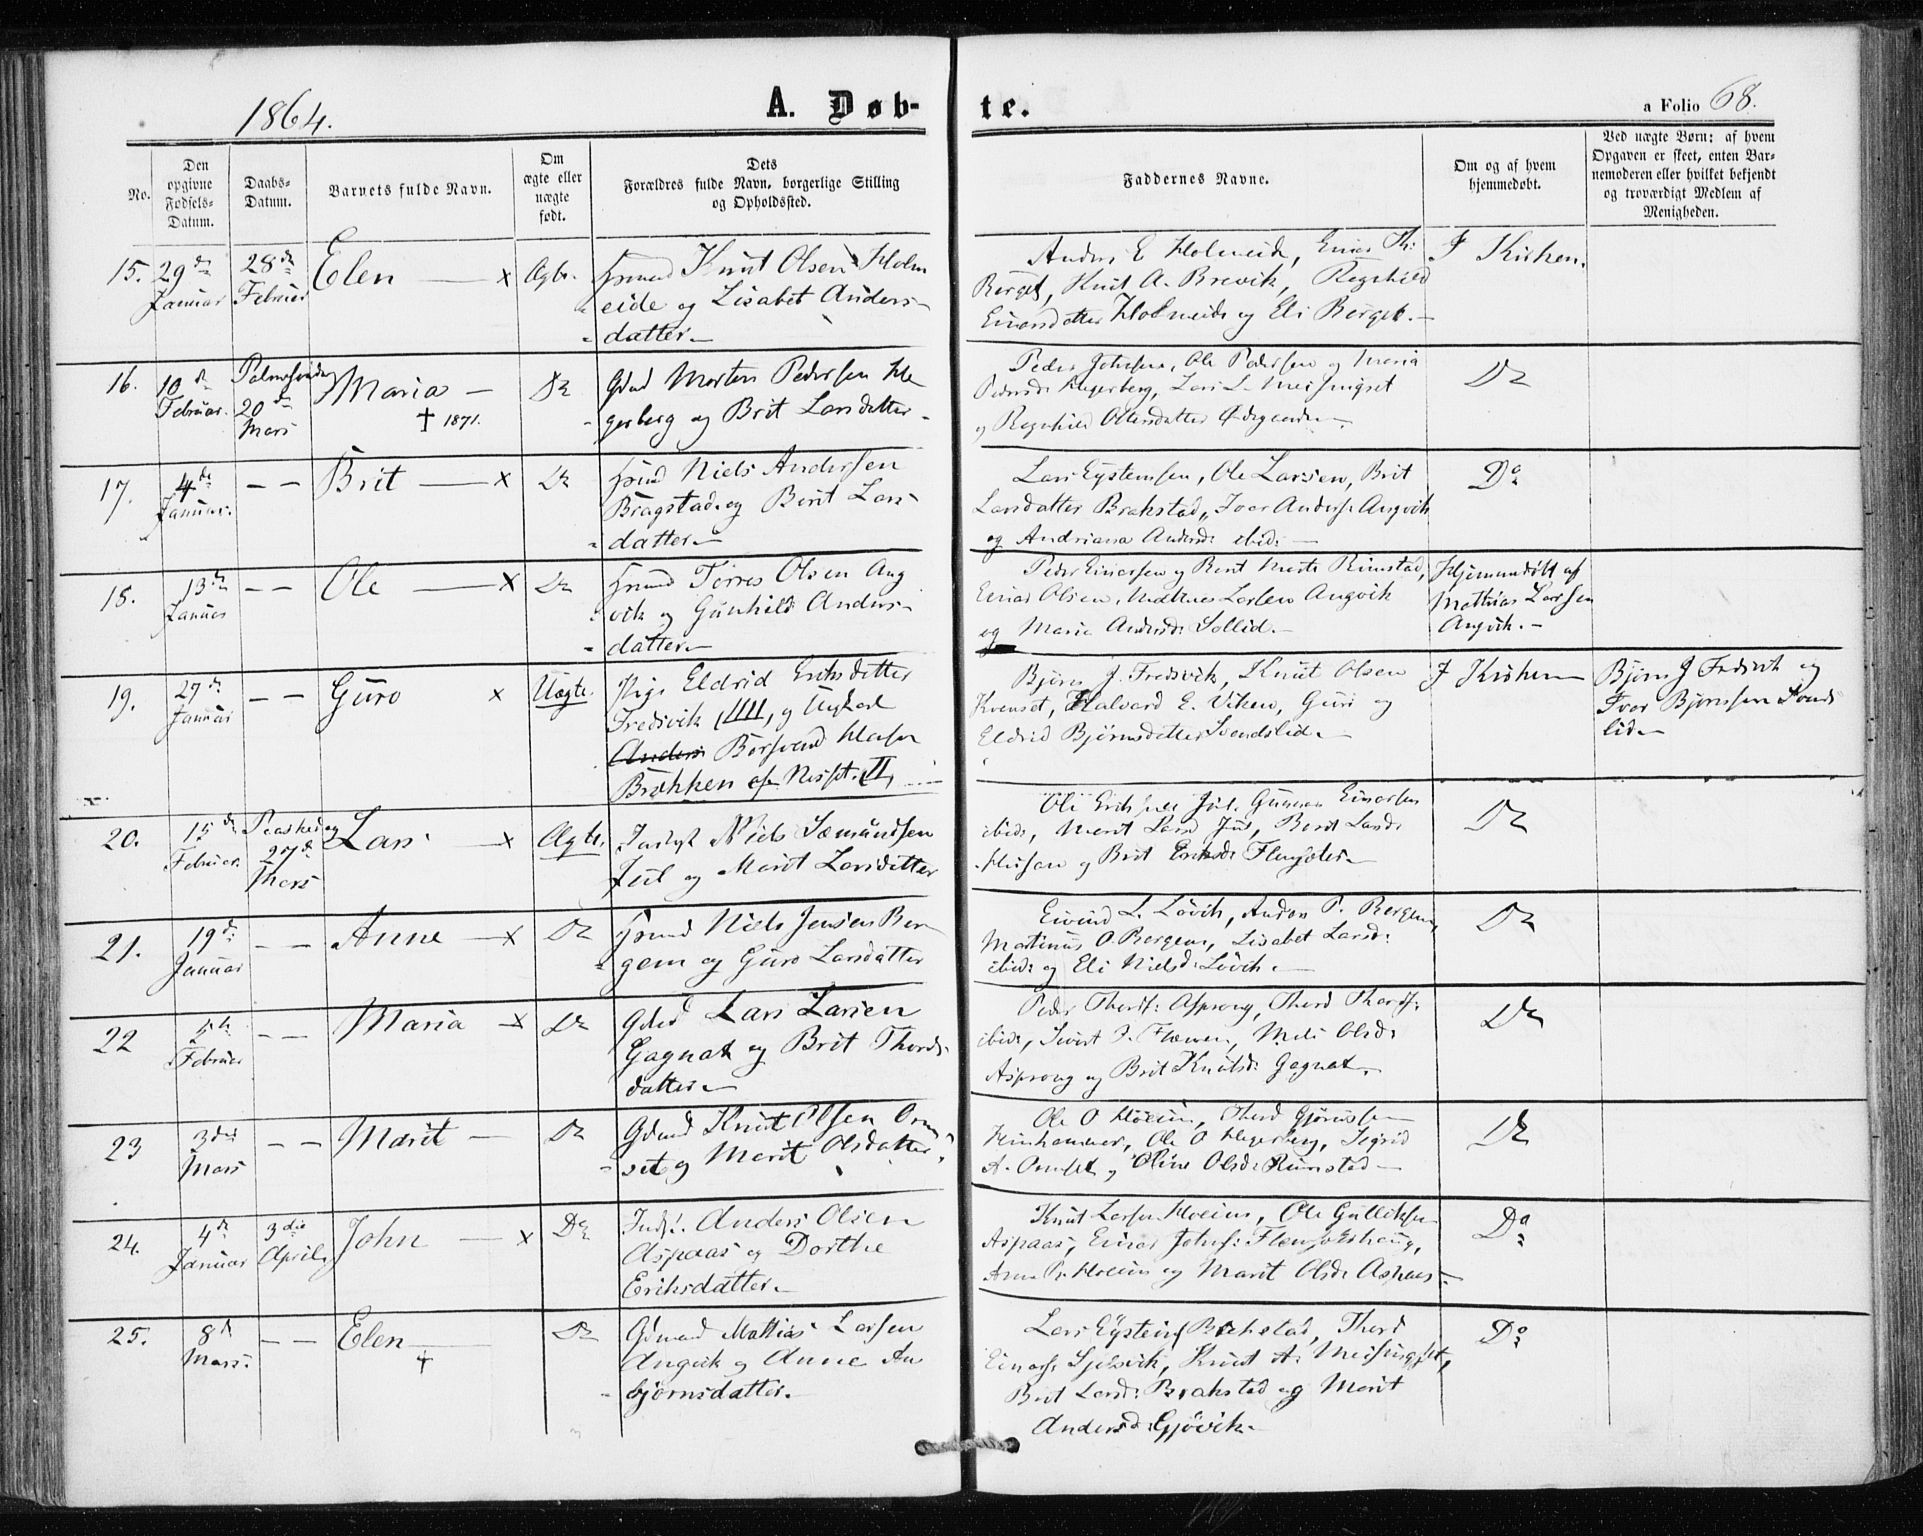 1864.
A. Døb-
te.
a Folio 68.
No.
Den
opgivne
Fødsels-
Datum.
Daabs-
Datum.
Barnets fulde Navn.
Om
ægte eller
uægte
født.
Dets
Forældres fulde Navn, borgerlige Stilling
og Opholdssted.
Faddernes Navne.
Om og af hvem
hjemmedøbt.
Ved uægte Børn: af hvem
Opgaven er skeet, enten Bar-
nemoderen eller hvilket bekjendt
og troværdigt Medlem af
Menigheden.
15.
29de
Januar
28de
Februar
Elen x
Ægte
Knut Olsen Holm
eide og Lisabet Anders-
datter
Anders E Holmeid, Einar Th:
Berget, Knut A. Brevik, Ragnhild
Einarsdatter Holmeide og Eli Berget.
I Kirken.
16.
10de
Februar.
Palmesøndag
20de
Mars
Maria
† 1871.
Do
Gdmd Morten Pedersen He
gerberg og Brit Larsdatter
Peder Johnsen, Ole Pedersen og Maria
Pedersd: Hegerberg, Lars L. Meisingset
og Ragnhild Olsdatter Ødegaarden
Do
17.
4de
Januar.
— —
Brit x
Do
Niels Andersen
Bragstad og Berit Lars-
datter
Lars Eystensen, Ole Larsen, Brit
Larsdatter Brakstad, Ivar Anders: Angvik
og Andriana Andersd: ibid:
Do
18.
13de
Januar
— —
Ole x
Do
Torres Olsen Ang
vik og Gunhild Anders-
datter
Peder Einarsen og Berit Marta Rimstad,
Einar Olsen, Mathias Larsen Angvik
og Maria Andersd: Sollid.
Hjemmedøbt af
Mathias Larsen
Angvik.
19.
27de
Januar
— —
Guro x
Uægte.
Pige Eldrid Eriksdatter
Fredsvik, og Ungkarl
Anders
Brekken af Nesset.
Bjørn J. Fredsvik, Knut Olsen
Kvenset, Halvard E. Viken, Guri og
Eldrid Bjørnsdatter Svendslid.
I Kirken
Bjørn J Fredsvik og
Ivar Bjørnsen Svends
lid
20.
15de
Februar.
Paaskedag
27de
Mars
Lars x
Ægte.
Niels Sæmundsen
Jul og Marit Larsdatter
Ole Eriksen Jul, Gunnar Einarsen
ibid:, Marit Larsd Jul, Berit Larsd:
og Brit Eriksd:
Do
21.
19de
Januar
— —
Anne x
Do
Niels Jensen Ber
gem og Guro Larsdatter
Eivind L. Løvik, Anders P. Bergem,
Martinus O. Bergem, Lisabet Larsd:
ibid: og Eli Nielsd: Løvik.
Do
22
5te
Februar
— —
Maria x
Do
Gdmd Lars Larsen
Gagnat og Brit Thords-
datter
Peder Thords: Asprong, Thord Thords:
ibid:, Sivert P. Flemmen, Mali Olsd:
Asprong og Brit Knutsd: Gagnat.
Do
23
3die
Mars
— —
Marit
Do
Gdmd Knut Olsen Orm
set og Marit Olsdatter
Ole O Høeim, Thord Gjøensen
Heinhammer, Ole O Hegerberg, Sigrid
A. Ormset og Oline Olsd: Rimstad
Do
24.
4de
Januar
3die
April
John x
Do
Inds: Anders Olsen
Aspaas og Dorthe
Eriksdatter
Knut Larsen Hoeim, Ole Gulliksen
Aspaas, Einar Johns:
Anne P. Hoeim og Marit Olsd: Aspaas
Do
25.
8de
Mars.
— —
Elen
†
Do
Gdmand Mathias Larsen
Angvik og Anne An
bjørnsdatter.
Lars Eystens Brakstad, Thord
Einars: Sjølsvik, Knut A. Meisingset,
Brit Larsd: Brakstad og Marit
Andersd: Gjøvik